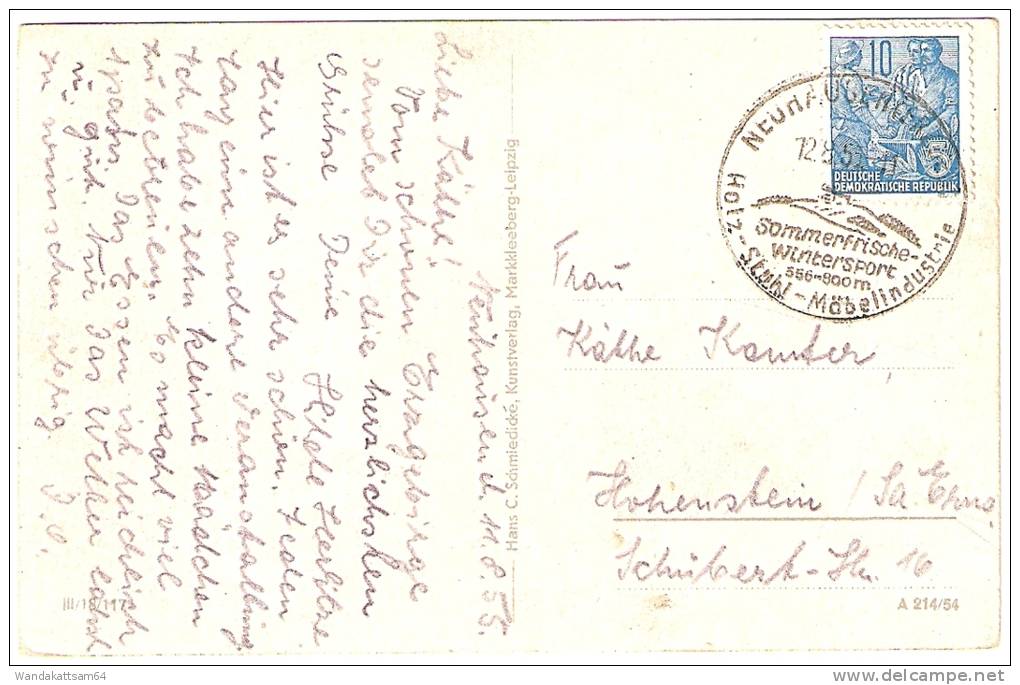 Neuhausen d. 11. 8. 55.
Liebe Käthe!
Vom schönen Erzgebirge
sendet Dir die herzlichsten
Grüsse Deine Hilde
Hier ist es sehr schön. Jeden
Tag eine andere Veranstaltung
Ich habe zehn kleine Mädchen
zu Es macht viel
spass. Das Essen ist reichlich
u. gut. Nur das Wetter lässt
zu wünschen übrig.
D. O.
III/18/117
Hans C. Schmiedicke, Kunstverlag, Markkleeberg-Leipzig
10
DEUTSCHE
DEMOKRATISCHE REPUBLIK
5
NEUHAUSEN
12.8.55
Sommerfrische-
Wintersport
556-800 m
Holz-Stuhl-Möbelindustrie
Frau
Käthe
Hohenstein / Sa. Erns.
Schubert-Str. 16
A 214/54
Wandakattsam64
delcampe.net